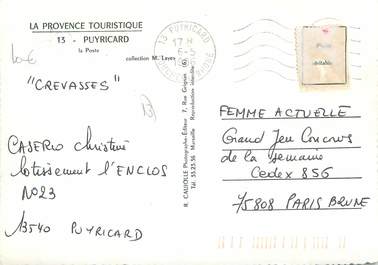 LA PROVENCE TOURISTIQUE
13 - PUYRICARD
la Poste
collection M. Layes
"CREVASSES"
CASERIO Christine
Lotissement l'ENCLOS
N°23
13540 PUYRICARD
13 PUYRICARD
17H
6-5
BOUCHES DU RHONE
R. CAUJOLLE Photographe-Editeur 7, Rue Grignan
Tél. 33.23.56 Marseille Reproduction interdite
FEMME ACTUELLE
Grand Jeu Concours
de la semaine
Cedex 856
75808 PARIS BRUNE